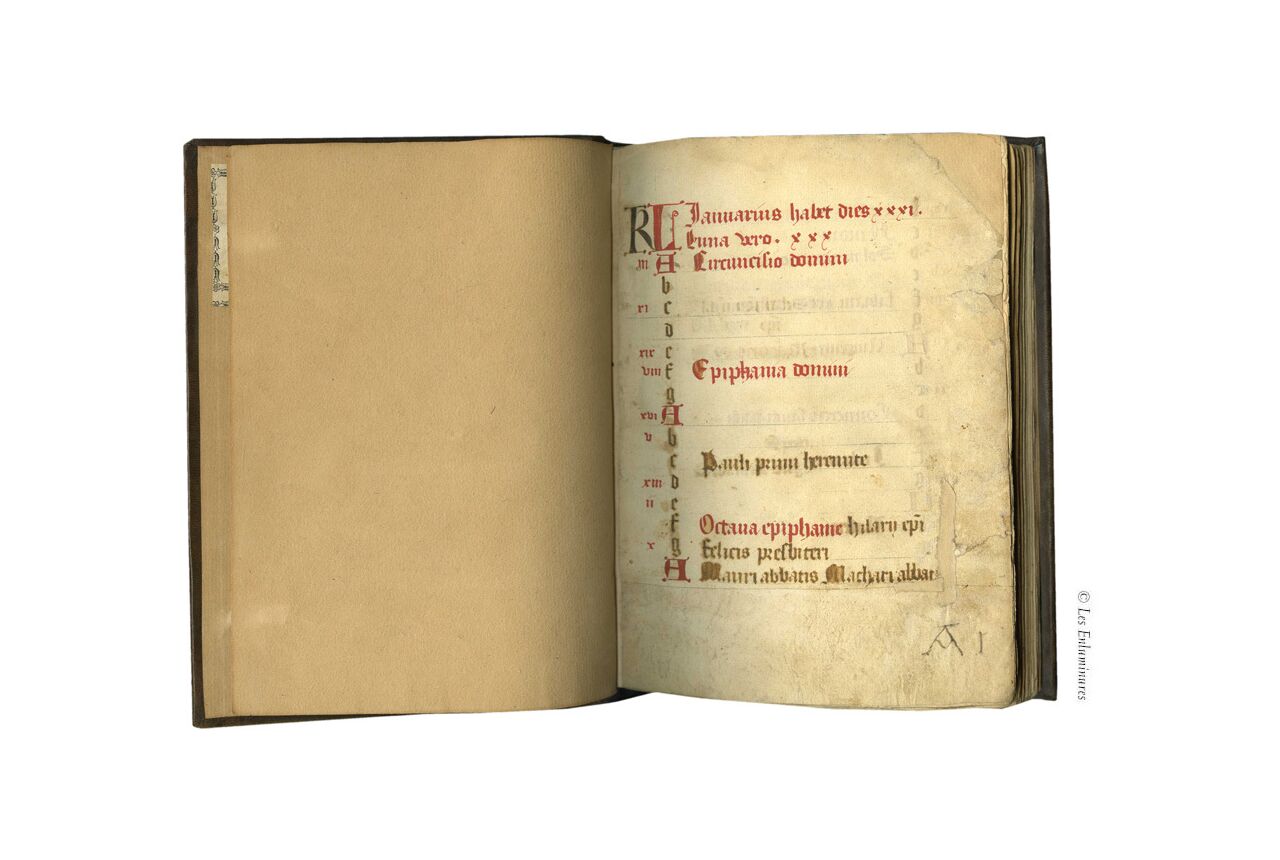 KL Januarius habet dies xxxi.
Luna vero. xxx
iii A Circuncisio domini
b
xi c
d
xix e
viii f Epiphania domini
g
xvi A
v b
c Pauli primi heremite
xiii d
ii e
f Octava epiphanie hilarii epi
x g Felicis presbiteri
A Mauri abbatis Macharii abbat
A 1
© Les Enluminures